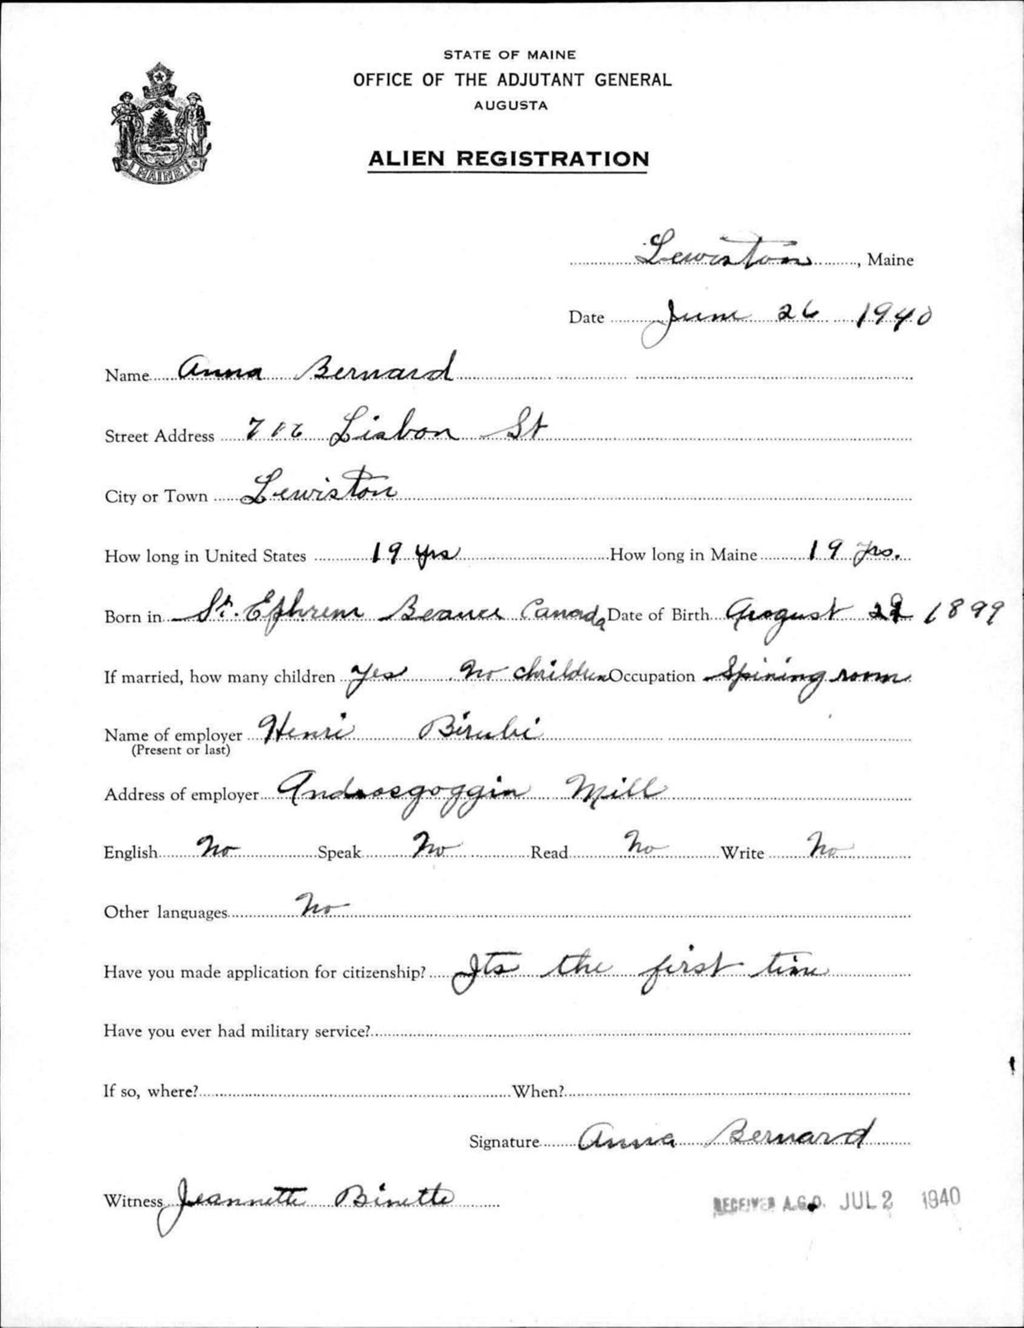 STATE OF MAINE
OFFICE OF THE ADJUTANT GENERAL
AUGUSTA
ALIEN REGISTRATION
MAINE
Lewiston, Maine
Date June 26 1940
Name Anna Bernard
Street Address Lisbon St
City or Town Lewiston
How long in United States 19 yrs How long in Maine 19 yrs.
Born in St. Ephrem Beauce Canada Date of Birth August 29 1899
If married, how many children Yes No children Occupation Spining room
Name of employer Henri
(Present or last)
Address of employer Androsgoggin Mill
English No Speak No Read No Write No
Other languages No
Have you made application for citizenship? Its the first time
Have you ever had military service?
If so, where? When?
Signature Anna Bernard
Witness Jeannette Binette
RECEIVED A.G.O. JUL 2 1940